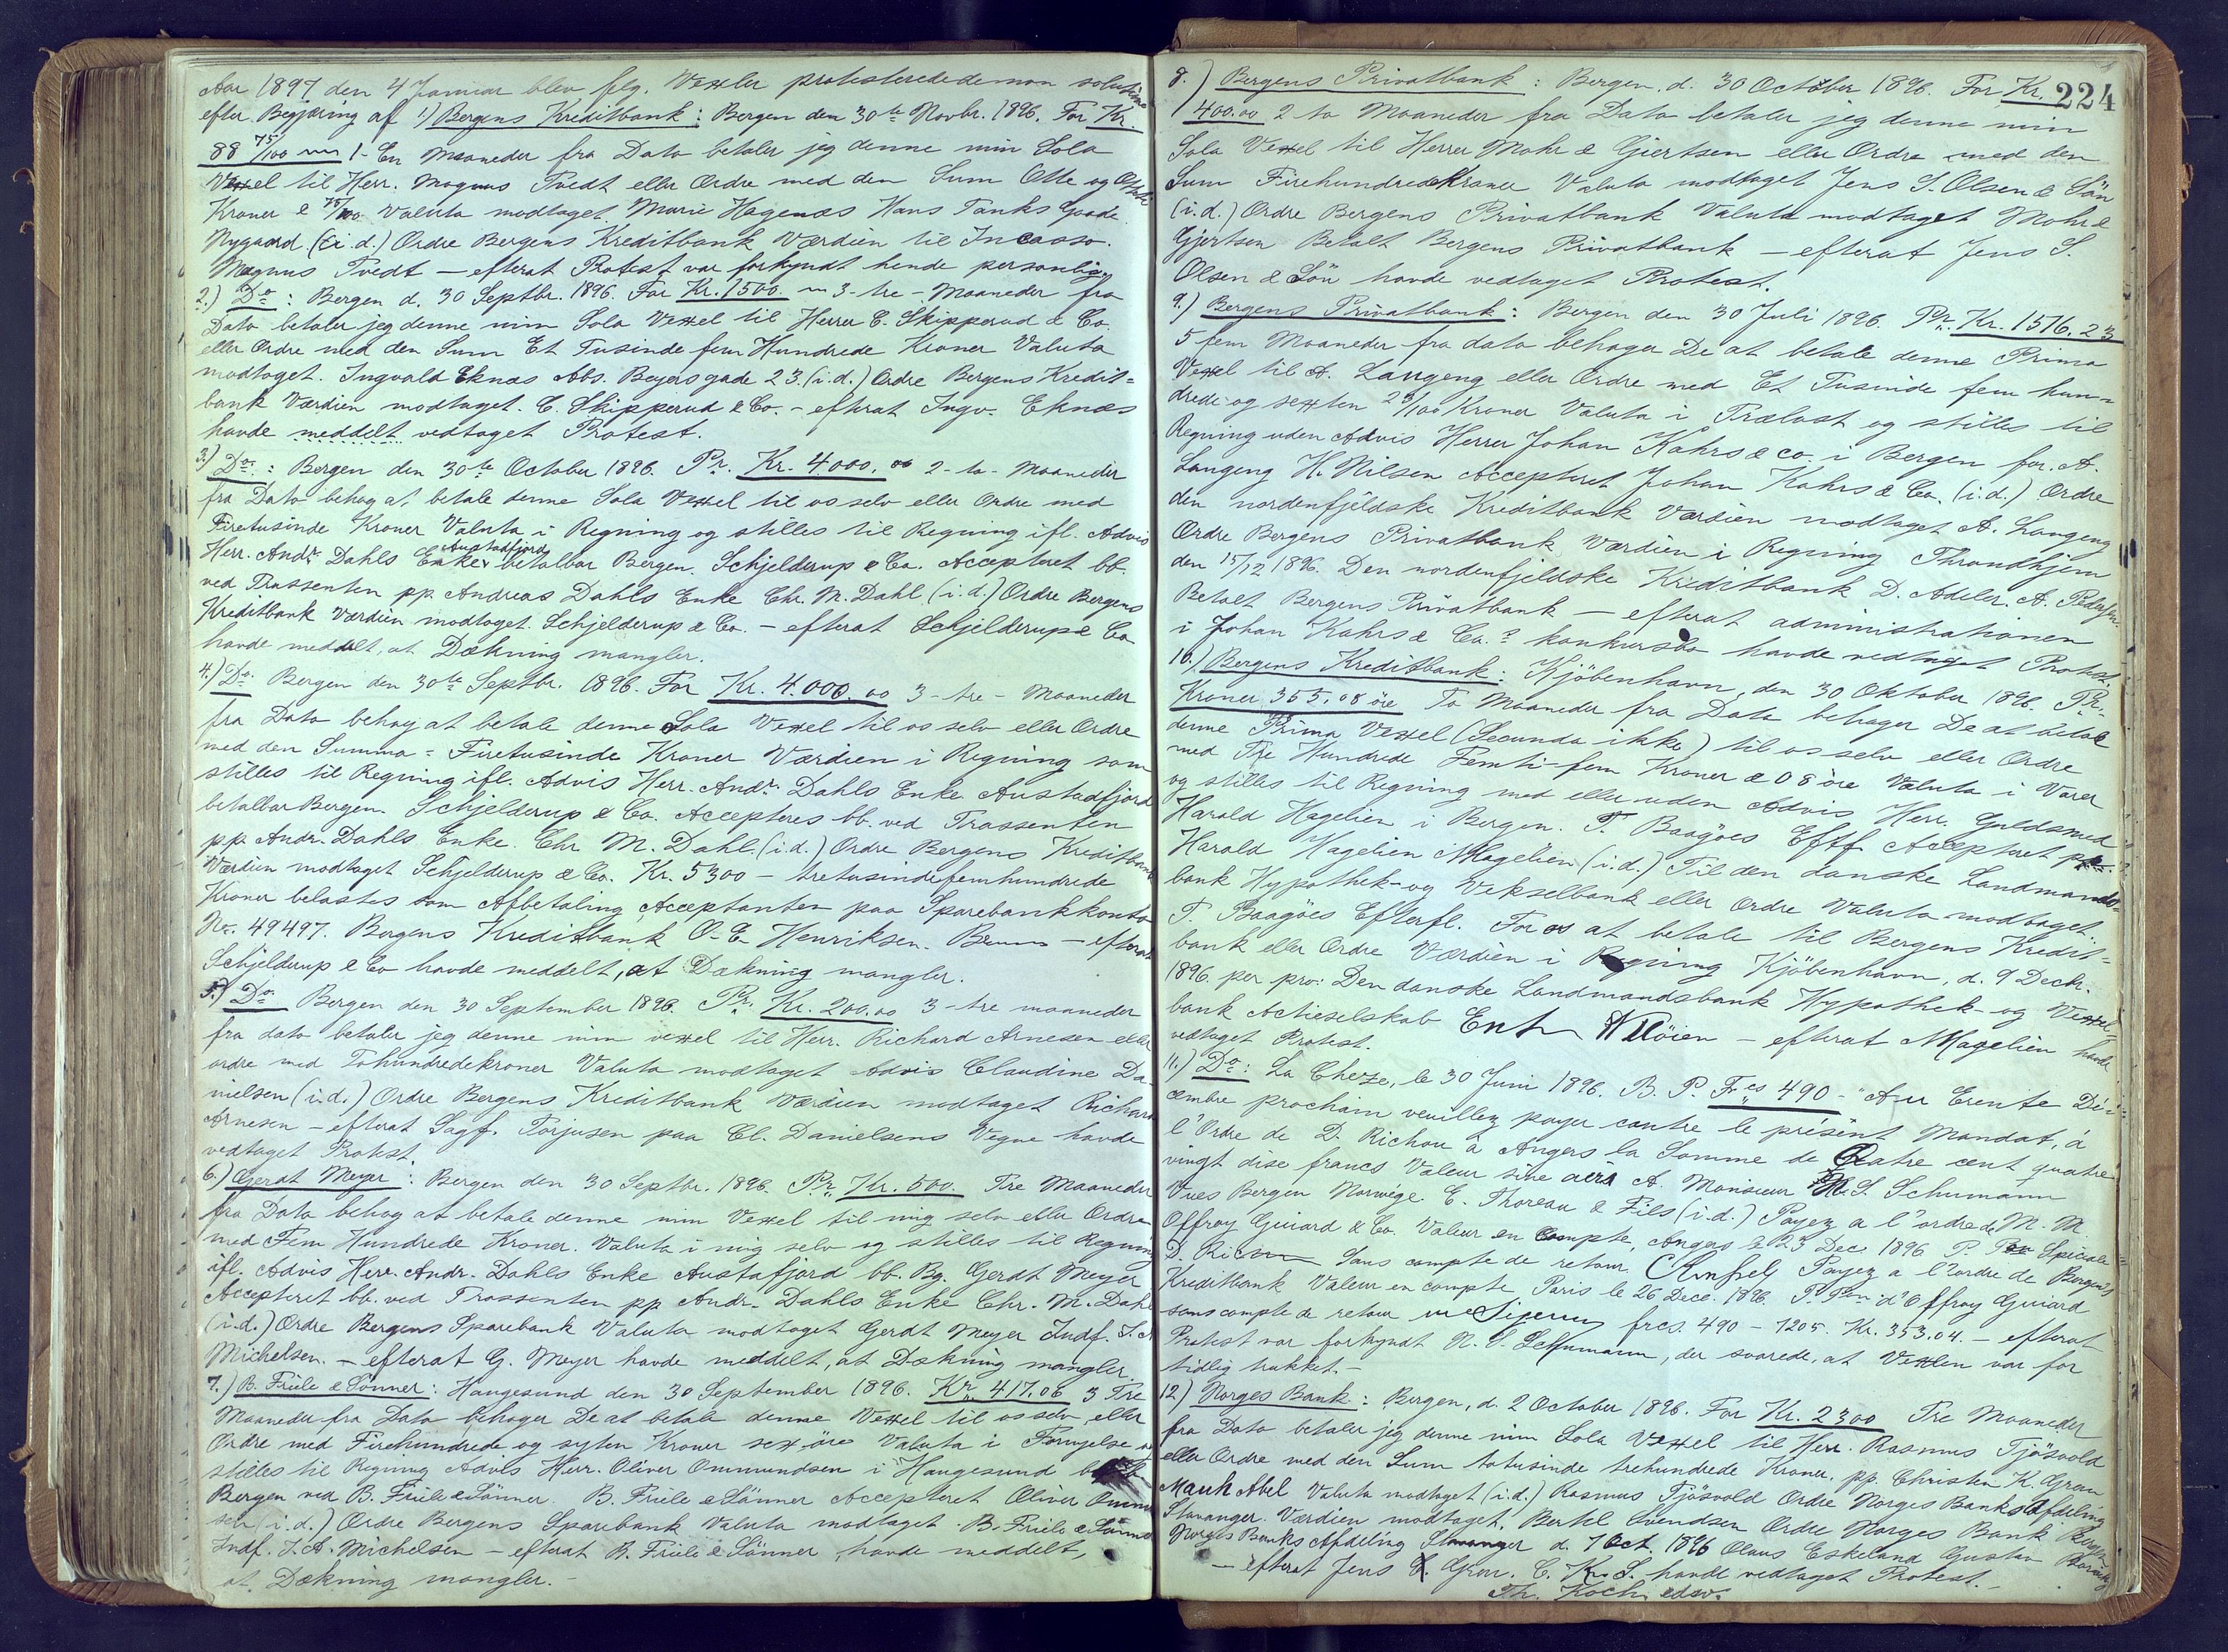 Aar 1897 den 4 Januar blev flg. Vexler protesterede demon solution
efter Begjæring af 1) Bergens Kreditbank: Bergen den 30te Novbr. 1896. For Kr.
88 75/100 1- En Maaneder fra Dato betaler jeg denne min Sola
Vexel til Herr. Magnus Tvedt eller Ordre med den Sum Otte og Otteti
Kroner & 75/100 Valuta modtaget. Marie Hagenæs Hans Tanks Gaade
Nygaard. (i.d.) Ordre Bergens Kreditbank Værdien til Incasso.
Magnus Tvedt – efterat Protest var forkyndt hende personlig
2.) Do: Bergen d. 30 Septbr. 1896. For Kr. 1500. 3- tre - Maaneder fra
Dato betaler jeg denne min Sola Vexel til Herrer C. Skipperud & Co.
eller Ordre med den Sum Et Tusinde fem Hundrede Kroner Valuta
modtaget. Ingvald Eknæs Abs. Beyersgade 23. (i.d.) Ordre Bergens Kredit=
bank Værdien modtaget. C. Skipperud & Co. – efterat Ingv. Eknæs
havde meddelt vedtaget Protest.
3.) Do: Bergen den 30te October 1896. Pr. Kr. 4000.00 2- to - Maaneder
fra Dato behag at betale denne Sola Vexel til os selv eller Ordre med
Firetusinde Kroner Valuta i Regning og stilles til Regning ifl. Advis
Herr. Andr. Dahls Enke, Austadfjord betalbar Bergen. Schjelderup & Co. Accepteret bb.
ved Trassenten pp. Andreas Dahls Enke Chr. M. Dahl (i.d.) Ordre Bergens
Kreditbank Værdien modtaget. Schjelderup & Co. – efterat Schjelderup & Co
havde meddelt, at Dækning mangler.
4.) Do. Bergen den 30te Septbr. 1896. For Kr. 4.000.00 3 - tre - Maaneder
fra Dato behag at betale denne Sola Vexel til os selv eller Ordre
med den Summa = Firetusinde Kroner Værdien i Regning som
stilles til Regning ifl. Advis Herr. Andr. Dahls Enke Austadfjord
betalbar Bergen. Schjelderup & Co. Accepteres bb. ved Trassenten
p.p. Andr. Dahls Enke. Chr M. Dahl. (i.d.) Ordre Bergens Kreditbank
Værdien modtaget Schjelderup & Co. Kr. 5300 – tretusindefemhundrede
Kroner belastes som Afbetaling Acceptanten paa Sparebankkonto
No. 49497. Bergens Kreditbank O. E. Henriksen. – efterat
Schjelderup & Co havde meddelt, at Dækning mangler.
5.) Do Bergen den 30 September 1896. Pr. Kr. 200.00 3 - tre maaneder
fra dato betaler jeg denne min vexel til Herr. Richard Arnesen eller
ordre med Tohundredekroner Valuta modtaget Advis Claudine Da-
nielsen (i.d.) Ordre Bergens Kreditbank Værdien modtaget Richard
Arnesen – efterat Sagf. Torjusen paa Cl. Danielsens Vegne havde
vedtaget Protest.
6.) Gerdt Meyer: Bergen den 30 Septbr. 1896. Pr. Kr. 500. Tre Maaneder
fra Dato behag at betale denne min Vexel til mig selv eller Ordre
med Fem Hundrede Kroner. Valuta i mig selv og stilles til Regning
ifl. Advis Herr. Andr. Dahls Enke Austafjord bb. Bg. Gerdt Meyer
Accepteret bb. ved Trassenten pp Andr. Dahls Enke Chr. M. Dahl
(i.d.) Ordre Bergens Sparebank Valuta modtaget Gerdt Meyer Indf. J. A
Michelsen. – efterat G. Meyer havde meddelt, at Dækning mangler.
7.) B. Friele & Sønner: Haugesund den 30 September 1896. Kr. 417.06 3 Tre
Maaneder fra Dato behager De at betale denne Vexel til os selv eller
Ordre med Firehundrede og sytten Kroner sex øre Valuta i Fornyelse og
stilles til Regning Advis Herr. Oliver Ommundsen i Haugesund
Bergen ved B. Friele & Sønner. B. Friele & Sønner Accepteret Oliver Ommund
sen (i.d.) Ordre Bergens Sparebank Valuta modtaget. B. Friele & Sønner
Indf. J. A. Michelsen – efterat B. Friele & Sønner havde meddelt,
at Dækning mangler. –
224
8.) Bergens Privatbank: Bergen, d. 30 October 1896. For Kr.
400.00 2 to Maaneder fra Dato betaler jeg denne min
Sola Vexel til Herrer Mohr & Gjertsen eller Ordre med den
Sum Firehundredekroner Valuta modtaget Jens S. Olsen & Søn
(i.d.) Ordre Bergens Privatbank Valuta modtaget Mohr &
Gjertsen Betalt Bergens Privatbank – efterat Jens S.
Olsen & Søn havde vedtaget Protest.
9.) Bergens Privatbank: Bergen den 30 Juli 1896. Pr. Kr. 1516.23
5 fem Maaneder fra dato behager De at betale denne Prima
Vexel til A. Langeng eller Ordre med Et Tusinde fem hun=
drede og sexten 23/100 Kroner Valuta i Trælast og stilles til
Regning uden Advis Herrer Johan Kahrs & Co. i Bergen for. A.
Langeng H. Nilsen Accepteret Johan Kahrs & Co. (i.d.) Ordre
den nordenfjeldske Kreditbank Værdien modtaget A. Langeng
Ordre Bergens Privatbank Værdien i Regning Throndhjem
den 15/12 1896. Den nordenfjeldske Kreditbank D. Adeler. A. Petersen
Betalt Bergens Privatbank – efterat administrationen
i Johan Kahrs & Co.s konkursbo havde vedtaget Protest.
10.) Bergens Kreditbank: Kjøbenhavn, den 30 Oktober 1896. Pr.
Kroner 355.08 øre To Maaneder fra Dato behager De at betale
denne Prima Vexel (Secunda ikke) til os selv eller Ordre
med Tre Hundrede Femti-fem Kroner & 08 øre Valuta i Varer
og stilles til Regning med eller uden Advis Herr. Guldsmed
Harald Hagelien i Bergen. T. Baagøes Eftf. Accepteret
Harald Hagelien MHagelien (i.d.) Til den danske Landmands-
bank Hypothek- og Vekselbank eller Ordre Valuta modtaget.
T. Baagöes Efterfl. For os at betale til Bergens Kredit=
bank eller Ordre Værdien i Regning Kjøbenhavn, d. 9 Decb.
1896. per pro: Den danske Landmandsbank Hypothek- og Vexel=
bank Actieselskab – efterat MHagelien havde
vedtaget Protest.
11.) Do: La Cheze, le 30 Juni 1896. B. P. Frcs 490 - "Au Trente Dé-
cembre prochain veuillez payer contre le présent Mandat, á
l'Ordre de D. Richou à Angers la Somme de Quatre cent quatre
vingt disc francs Valeur A. Monsieur N. S. Schumann
Vues Bergen Norwége. E. Thoreau & Fils (i.d.) Payez a l'ordre de M. M.
Offroy Guiard & Co. Valeur en Compte, Angers le 23 Dec. 1896
D. Richou Sans compte de retour Payez a l'ordre de Bergens
Kreditbank Valeur en compte Paris le 26 Dece. 1896. d'Offroy Guiard
sans compte de retour frcs. 490 - 7205. Kr. 353.04. – efterat
Protest var forkyndt N. S. Schumann, der svarede, at Vexlen var for
tidlig trukket. –
12.) Norges Bank: Bergen, d. 2 October 1896. For Kr. 2300 Tre Maaneder
fra Dato betaler jeg denne min Sola Vexel til Herr. Rasmus Tjøsvold
eller Ordre med den Sum totusinde trehundrede Kroner. pp. Christen K. Gran
Abel Valuta modtaget (i.d.) Rasmus Tjøsvold Ordre Norges Banks Afdeling
Stavanger. Værdien modtaget. Bertel Svendsen Ordre Norges Bank Bergen
Norges Banks Afdeling Stavanger d. 7 Oct. 1896 Olaus Eskeland Gustav
– efterat Jens Gran. C. K. S. havde vedtaget Protest. –
Th. Koch edsv.